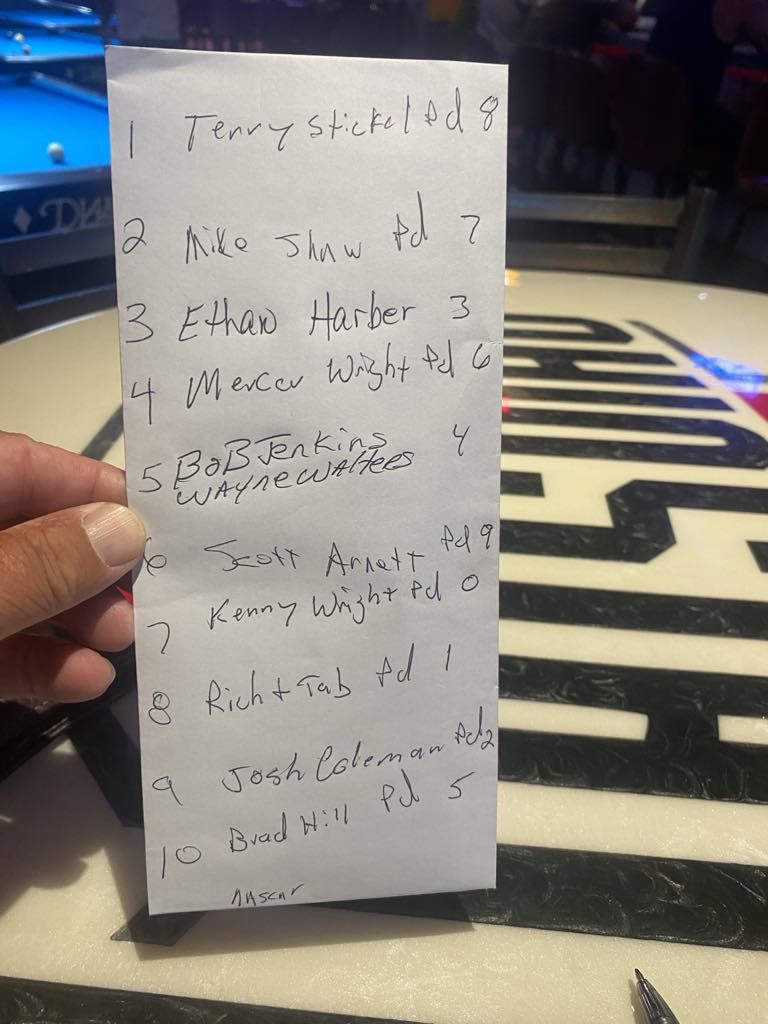 1 Terry Stickel Pd 8
2 Mike Shaw Pd 7
3 Ethan Harber 3
4 Mercer Wright Pd 6
5 BoB Jenkins 4
WAYNE WALTERS
6 Scott Arnett Pd 9
7 Kenny Wright Pd 0
8 Rich + Tab Pd 1
9 Josh Coleman Pd 2
10 Brad Hill Pd 5
NASCAR